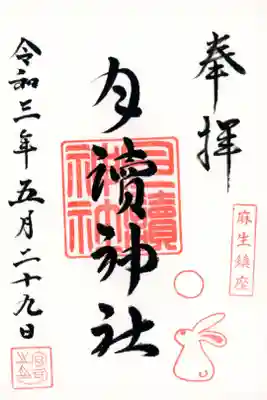 奉拝
麻生鎮座
月讀神社
月讀神社
令和三年五月二十九日